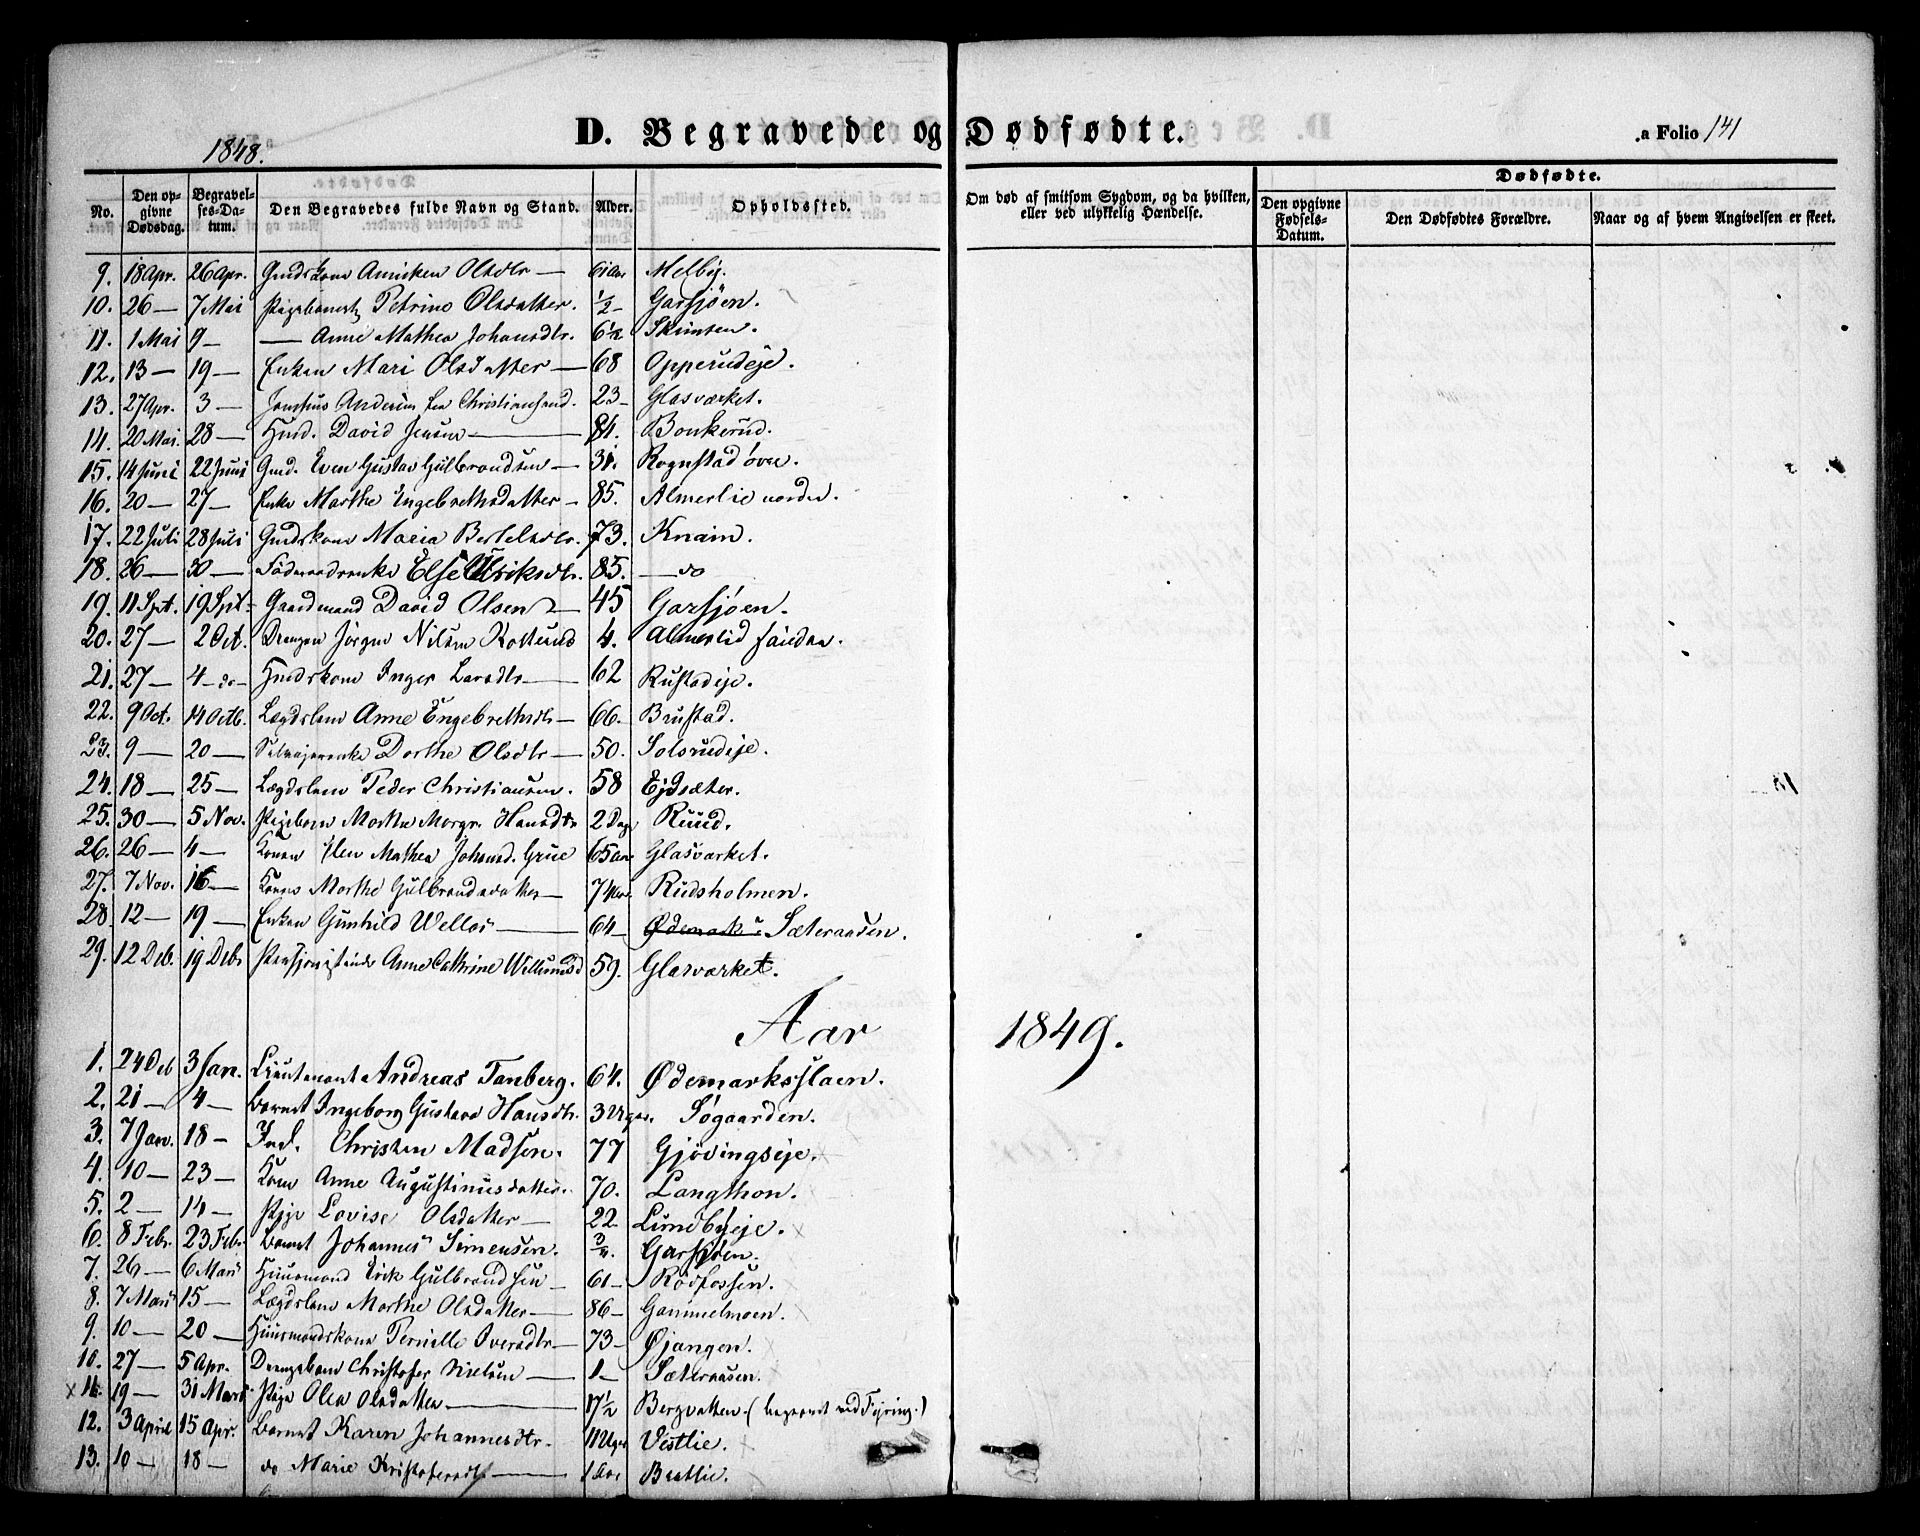 D. Begravede og Dødfødte.
1848.
.a Folio 141
No.
Den opgivne Dødsdag.
Begravelses-Datum.
Den Begravedes fulde Navn og Stand.
Alder.
Opholdssted.
Om død af smitsom Sygdom, og da hvilken, eller ved ulykkelig Hændelse.
Dødfødte.
Den opgivne Fødsels-Datum.
Den Dødfødtes Forældre.
Naar og af hvem Angivelsen er skeet.
9. 18 Apr. 26 Apr. Gmdskone Annichen Olsdtr — 61 Aar Melby.
10. 26 — 7 Mai Pigebarnet Petrine Olsdatter. 1/2 — Garsjøen.
11. 1 Mai 9 — — Anne Mathea Johansdtr. 6 1/2 Skinsen.
12. 13 — 19 — Enken Mari Olsdatter — 68 Opperudeje.
13. 27 Apr. 3 — Andersen fra Christiansand. 23 — Glasværket.
14. 20 Mai. 28 — Hmd. David Jensen — 84. Bonkerud.
15. 14 Juni 22 Juni Gmd. Even Gustav Gulbrandsen — 31. Rognstad øvre.
16. 20 — 27 — Enke Marthe Ingebrethsdatter — 85. Almerlie nordre.
17. 22 Juli 28 Juli Gmdskone Maria Bertelsdtr. 73. Knain.
18. 26 — 30 — Else Ulriksdtr. 85. — do
19. 11 Spt. 19 Spt. — Gaardmand David Olsen — 45 Garsjøen.
20. 27 — 2 Oct. Drengen Jørgen Nilsen Kolterud 4. Almerlid søndre.
21. 27 — 4 — do — Hmdskone Inger Larsdtr — 62 Rustadeje.
22. 9 Oct. 14 Octb. Lægdslem Anne Engebrethsdtr — 66. Brustad.
23. 9 — 20 — Dorthe Olsdtr — 50. Solsrudeje.
24. 18 — 25 — Lægdslem Peder Christiansen. 58 Ejdsæter.
25. 30 — 5 Nov. Pigebarn Marthe Margr. Hansdtr 2 Dage Ruud.
26. 26 — 4 — Konen Mathea Johansd. Grue 65 Aar Glasværket.
27. 7 Nov. 16 — Konen Marthe Gulbrandsdatter — 74 Rudsholmen.
28. 12 — 19 — Enken Gunhild — 64 — Ødemark Sæteraasen.
29. 12 Deb. 19 Debr Anne Cathrine 59. Glasværket.
Aar 1849.
1. 24 Deb 3 Jan. Lieutenant Andreas Tanberg. 64. Ødemarksstaen.
2. 21 — 4 — Barnet Ingeborg Gustava Hansdtr. 3 Uger. Søgaarden.
3. 7 Jan. 18 — Ind. Christen Madsen. 77 Gjøvingseje.
4. 10 — 23 — Kone Anne Augustinusdatter. 70. Langthon.
5. 2 — 14 — Pige Lovise Olsdatter — 22 Lundbyeje.
6. 8 Febr. 23 Febr Barnet Johannes Simensen. 3/4. Garsjøen.
7. 26 — 6 Mars Huusmand Erik Gulbrandsen — 61 — Rødfossen.
8. 7 Mars 15 — Lægdslem Marthe Olsdatter — 86 — Gammelmoen.
9. 10 — 20 — Huusmandskone Pernille Iversdtr — 73 — Øjangen.
10. 27 — 5 Apr. Drengebarn Christofer Nielsen — 1 — Sæteraasen.
x 11. 19 — 31 Mars Pige Olea Olsdatter — 17 1/2 Bergvatten. (begravet ved Fyring.)
12. 3 April 15 Apr. Barnet Karen Johannesdtr. 11 Uger Vestlie.
13. 10 — 18 — do Marie Kristofersdtr — 1 Aar Bratlie.